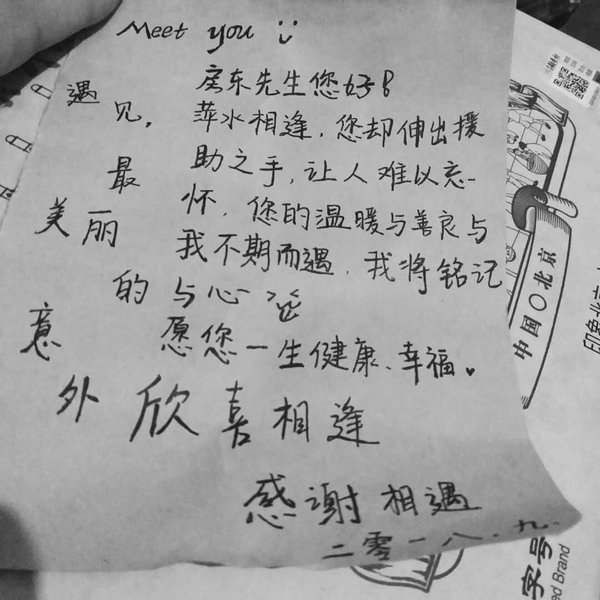 Meet you
房东先生您好
萍水相逢，您却伸出援
助之手，让人难以忘
怀，您的温暖与善良与
我不期而遇，我将铭记
与心
愿您一生健康、幸福。
遇
见，
最
美丽
的
意
外
欣喜相逢
感谢相遇
二零一八·九.
中国〇北京
印象北京
实号
ed Brand